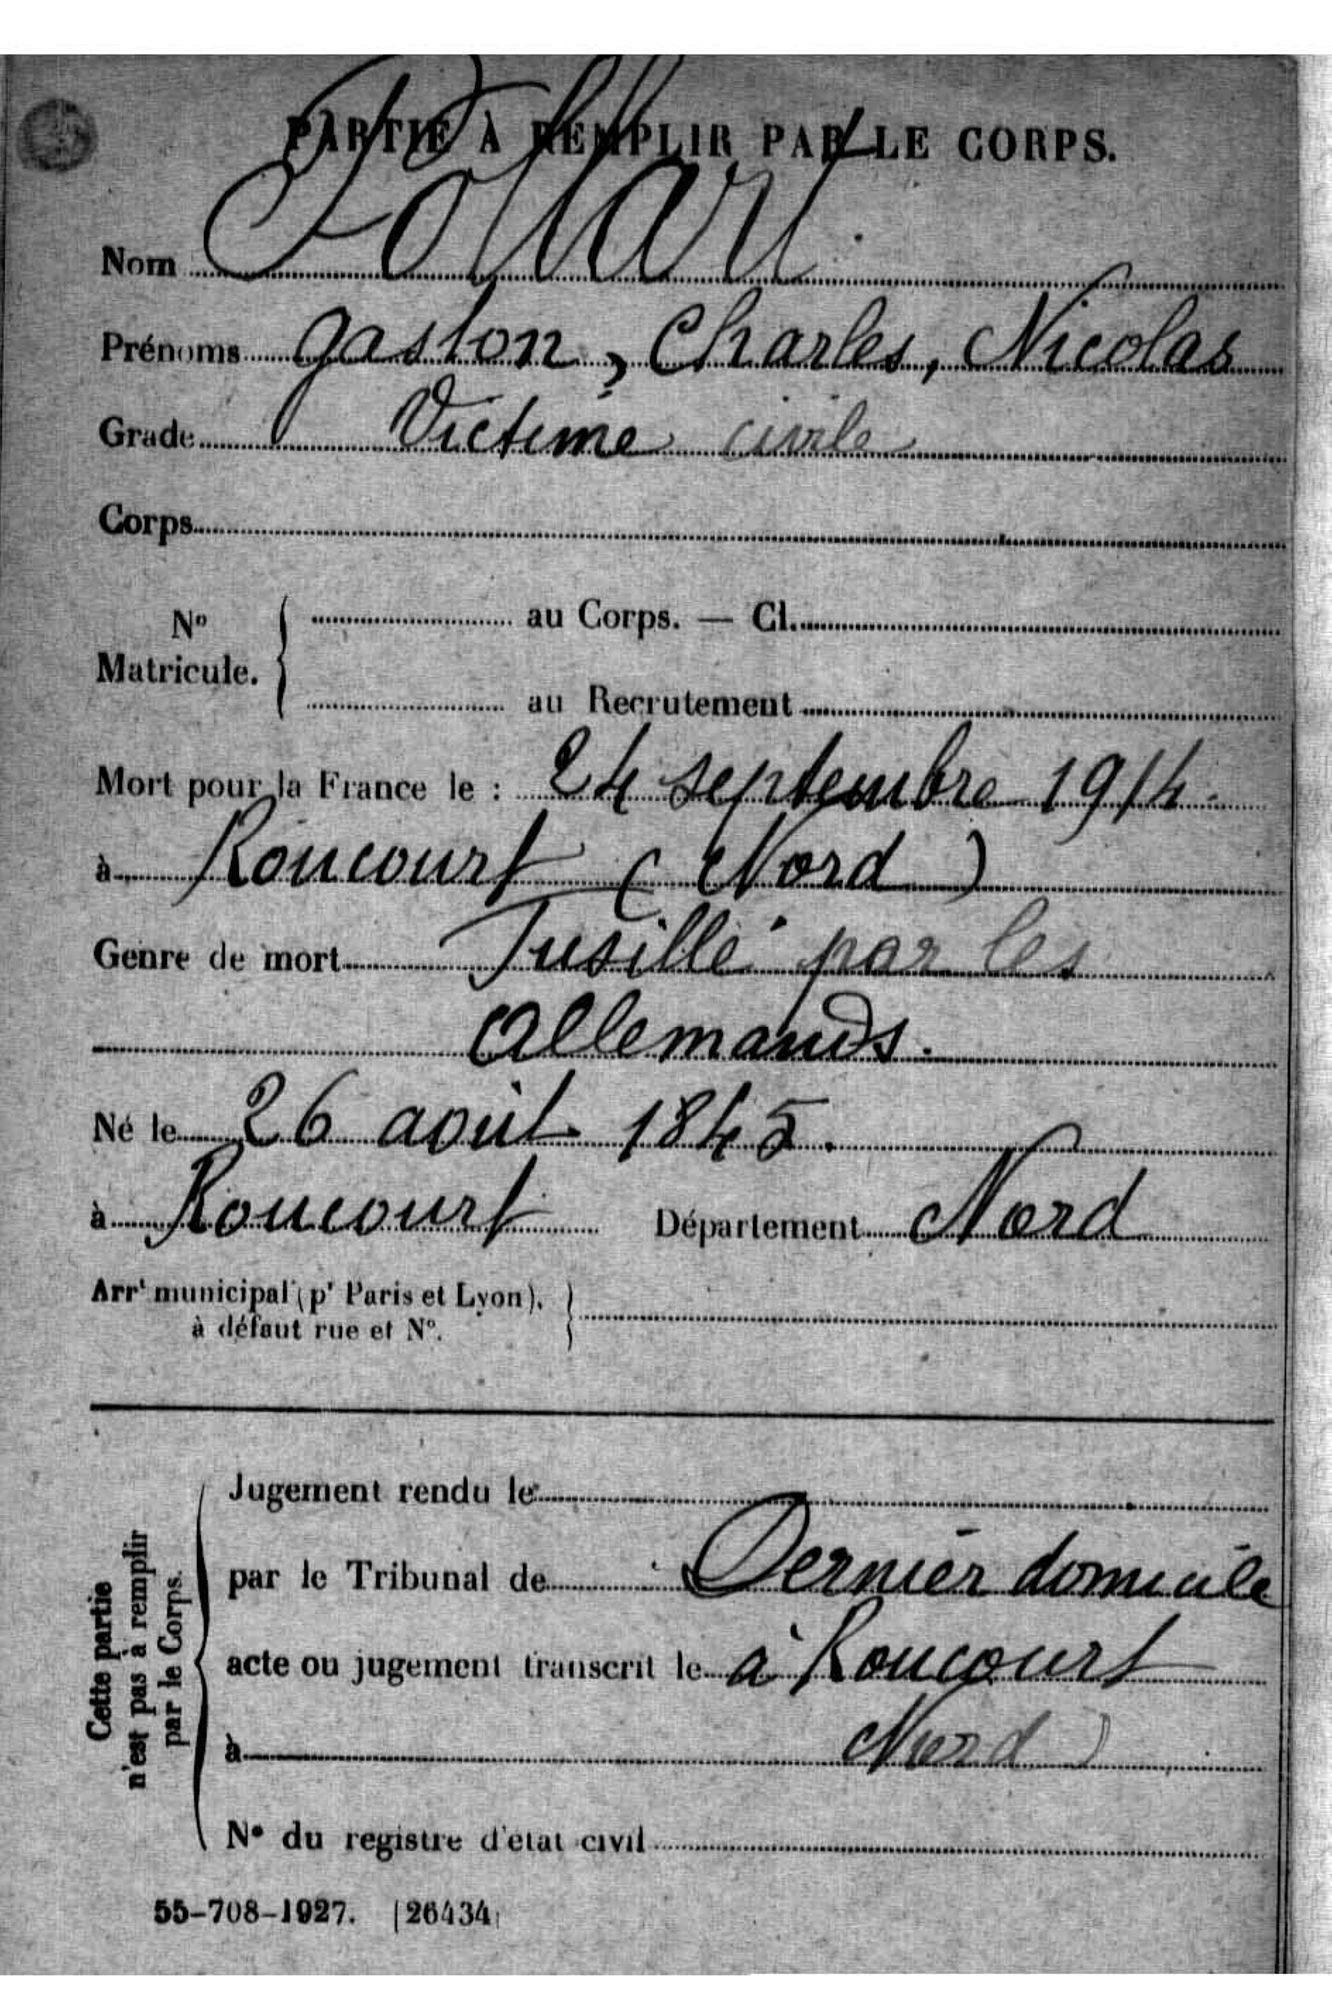 PARTIE À REMPLIR PAR LE CORPS.
Nom
Prénoms gaston, Charles, Nicolas
Grade Victime civile
Corps
N° Matricule. { au Corps. — Cl.
au Recrutement
Mort pour la France le : 24 septembre 1914.
à Roucourt (Nord)
Genre de mort Fusillé par les
allemands.
Né le 26 août 1845.
à Roucourt Département Nord
Arrt municipal (pr Paris et Lyon), }
à défaut rue et N°.
Cette partie
n'est pas à remplir
par le Corps.
Jugement rendu le
par le Tribunal de Dernier domicile
acte ou jugement transcrit le à Roucourt
à Nord)
N° du registre d'état civil
55-708-1927. [26434]